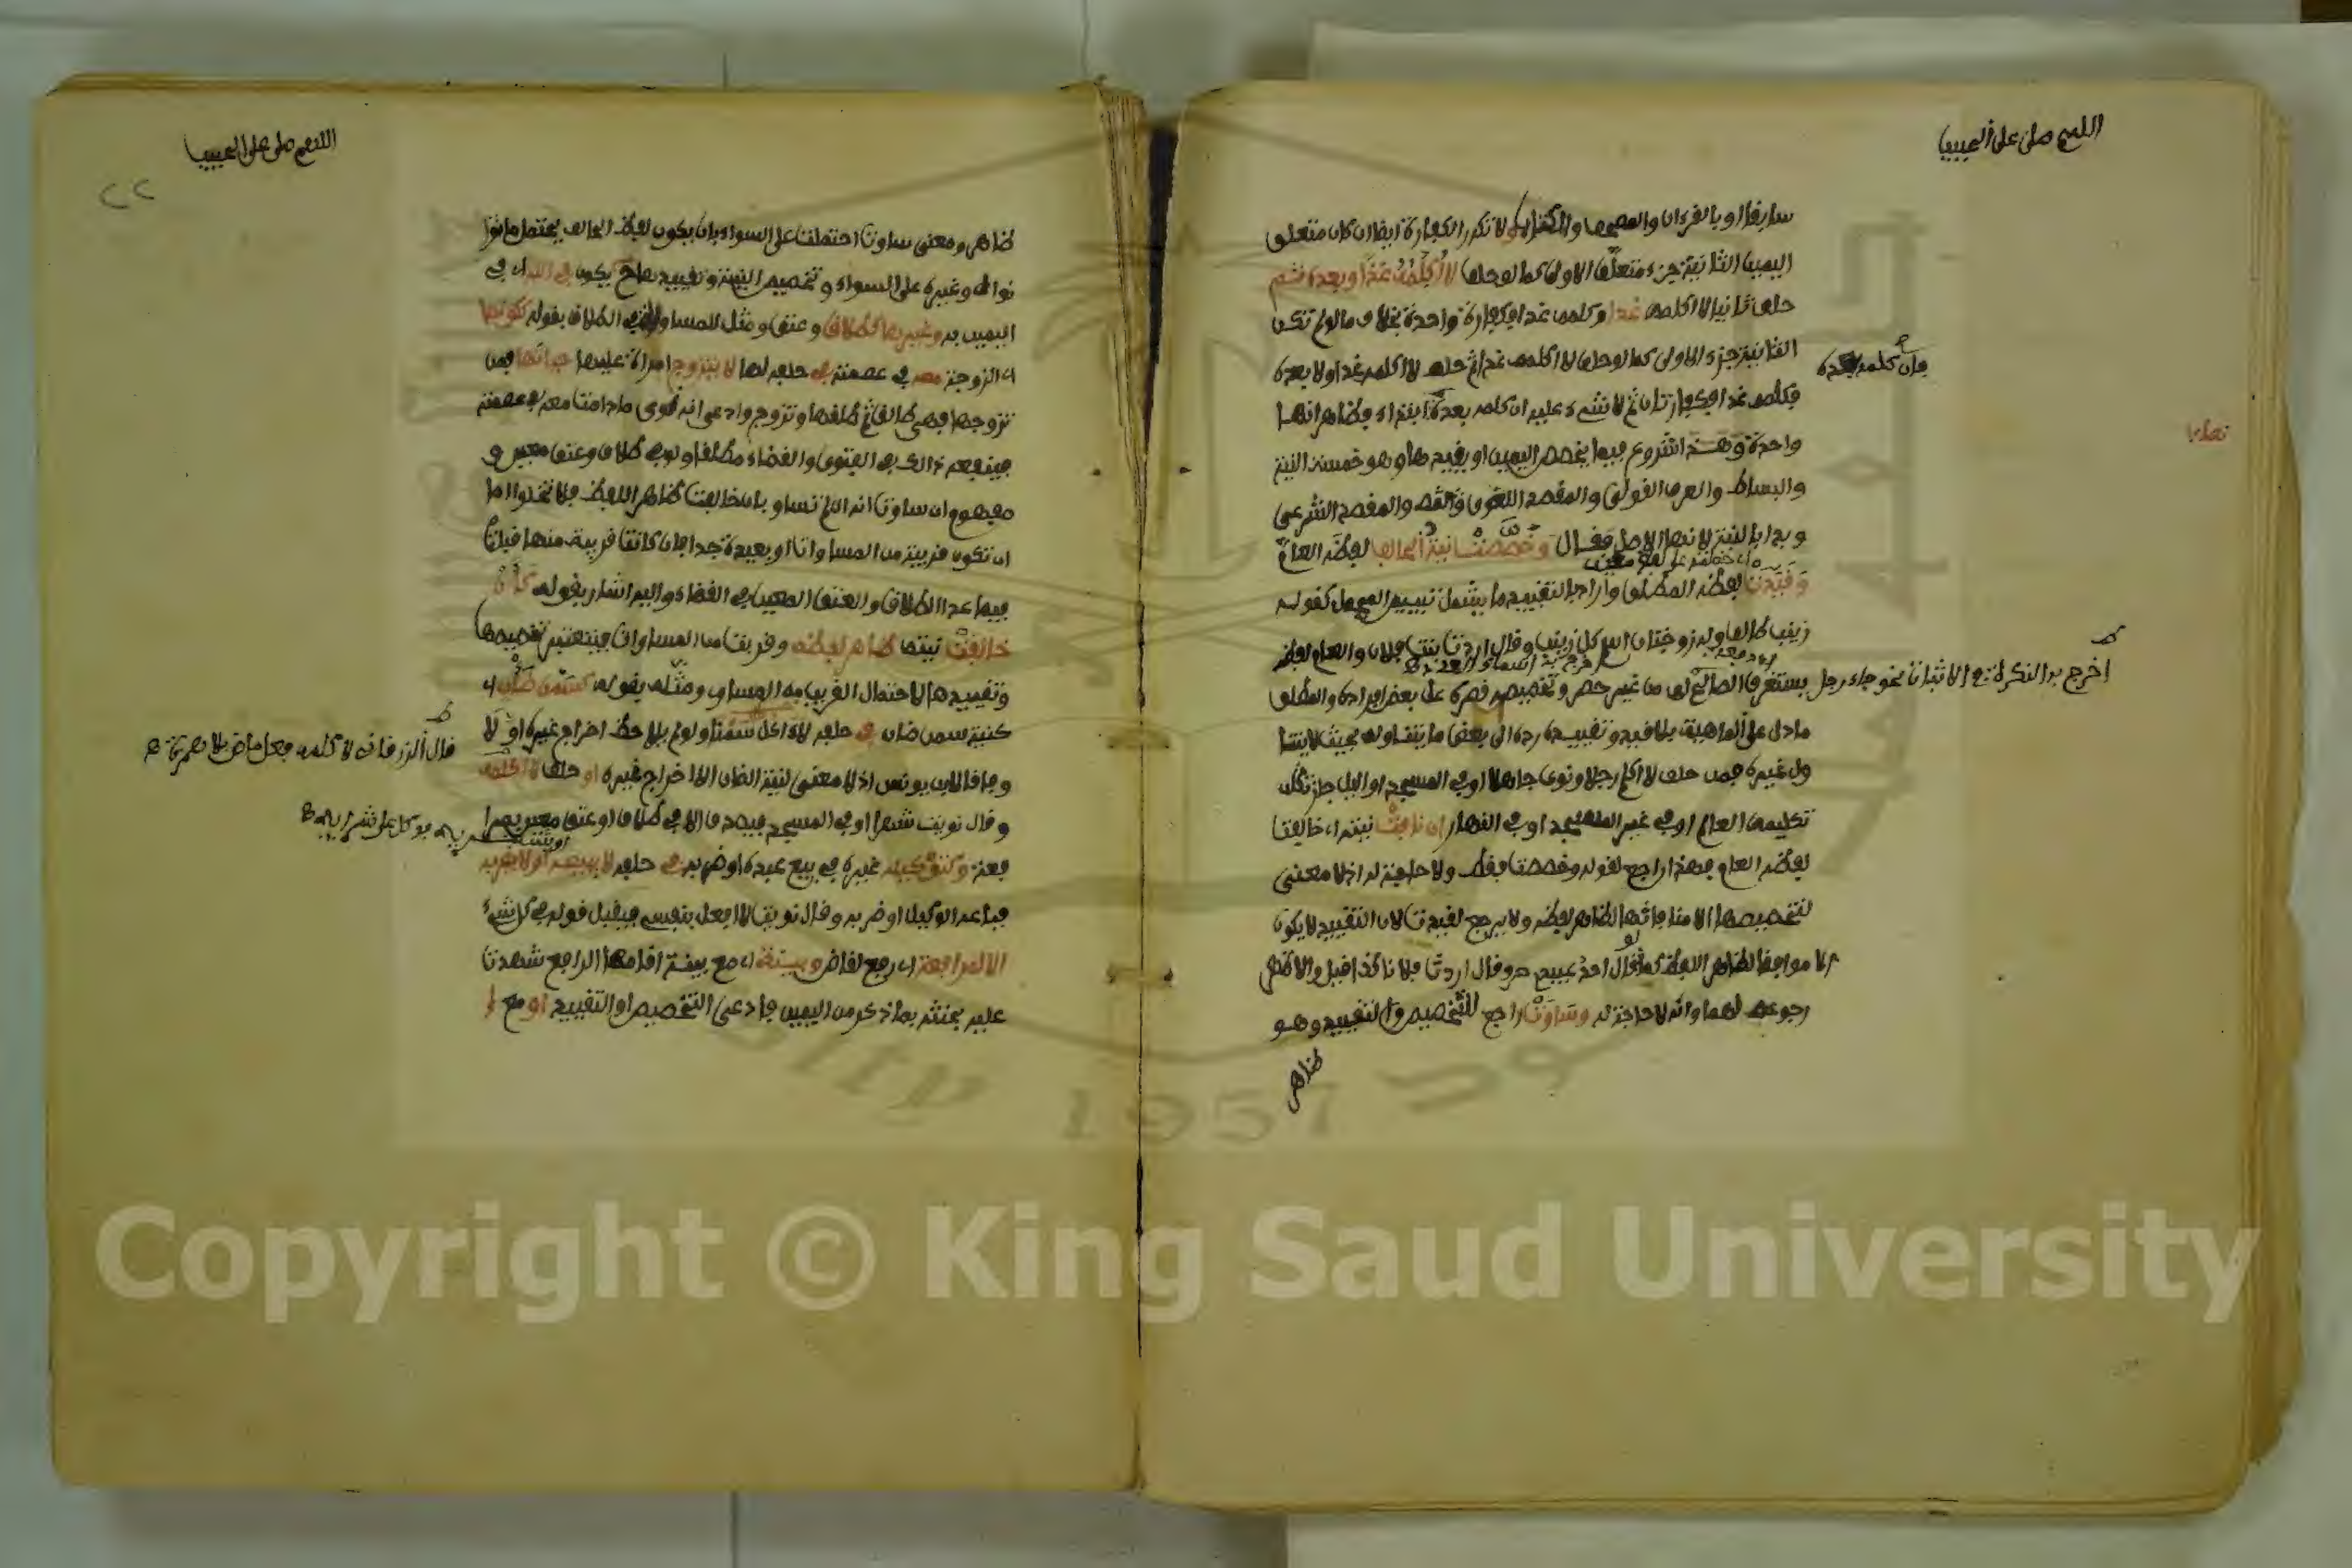 اللهم صلى على الحبيب
سابقا او بالقرءان والمصحف والكتاب او لا تكرر الكفارة ايضا ان كان متعلق
اليمين الثانية جزء متعلق الاولى كما لو حلف لا أكلمه غدا وبعده ثم
حلف ثانيا لا اكلمه غدا وكلمه غدا فكفارة واحدة بخلاف ما لو لم تكن
الثانية جزء الاولى كما لو حلف لا اكلمه غدا ثم حلف لا اكلمه غدا ولا بعده
فإن كلمه بعده
فكلمه غدا فكفارتان ثم لا شيء عليه ان كلمه بعده ابتداء وظاهر انها
واحدة وهذا شروع فيما يخصص اليمين او يقيدها وهو خمسة النية
والبساط والعرف القولي والمقصد اللغوي والمقصد الشرعي
وبدا بالنية لانها الاصل فقال وخصصت نية الحالف لفظه العام
وقيدت لفظه المطلق واراد بالتقييد ما يشمل تبيين المجمل كقوله
زينب طالق وله زوجتان اسم كل زينب وقال اردت بنت فلان والعام لفظ
يستغرق الصالح له من غير حصر وتخصيصه قصره على بعض افراده والمطلق
اخرج به النكرة في الاثبات نحو جاء رجل
ما دل على الماهية بلا قيد وتقييده رده الى بعض ما يتناوله بحيث لا يتنا
ول غيره فمن حلف لا اكلم رجلا ونوى جاهلا او في المسجد او الليل جاز له
تكليمه العالم او في غير المسجد او في النهار ان نافت نيته اي خالفت
لفظه العام فهذا راجع لقوله وخصصت فقط ولا حاجة له اذ لا معنى
لتخصيصها الا منافاتها لظاهر لفظه ولا يرجع لقيدت لان التقييد لا يكون
الا موافقا لظاهر اللفظ كما لو قال احد عبيدي حر وقال اردت فلانا كذا قيل والاظهر
رجوعه لهما وانه لا حاجة له وساوت راجع للتخصيص والتقييد وهو
ظاهر
اللهم صلى على الحبيب
٢٢
ظاهر ومعنى ساوت احتملت على السواء بان يكون لفظ الحالف يحتمل ما نوا
نواه وغيره على السواء وتخصيص النية وتقييدها يكون في الله اي في
اليمين به وغيرها كطلاق وعتق ومثل للمساوية في الطلاق بقوله ككونها
اي الزوجة معه في عصمته في حلفه لها لا يتزوج امراة عليها حياتها فمن
تزوجها فهي طالق ثم طلقها وتزوج وادعى انه نوى ما دامت معه في عصمته
فينفعه ذالك في الفتوى والقضاء مطلقا ولو في طلاق وعتق معين و
مفهوم ان ساوت انه ان لم تساو بان خالفت ظاهر اللفظ فلا تخلوا اما
ان تكون قريبة من المساواة او بعيدة جدا فان كانت قريبة منها قبلت
فيما عدا الطلاق والعتق المعين في القضاء واليه اشار بقوله كأن
خالفت نيته ظاهر لفظه وقربت من المساواة فيعتبر تخصيصها
وتقييدها لاحتمال القريب من المساوي ومثله بقوله كسمن ضأن اي
كنية سمن ضان في حلفه لا اكل سمنا ولو لم يلاحظ اخراج غيره اولا
قال الزرقاني لا كلمه فعل ماض بلا همزة
وفاقا لابن يونس اذ لا معنى لنية الضان الا اخراج غيره او حلف لا اكلمه
وقال نويت شهرا او في المسجد فيصدق الا في طلاق او عتق معين بمرا
فعة وكتوكيله غيره في بيع عبده او ضربه في حلفه لا يبيعه او لا يضربه
فباعه الوكيل او ضربه وقال نويت لا افعل بنفسي فيقبل قوله في كل شيء
الا لمرافعة اي رفع لقاض وبينة اي مع بينة اقامها الرافع شهدت
عليه بحنثه بما ذكر من اليمين فادعى التخصيص او التقييد او مع ا